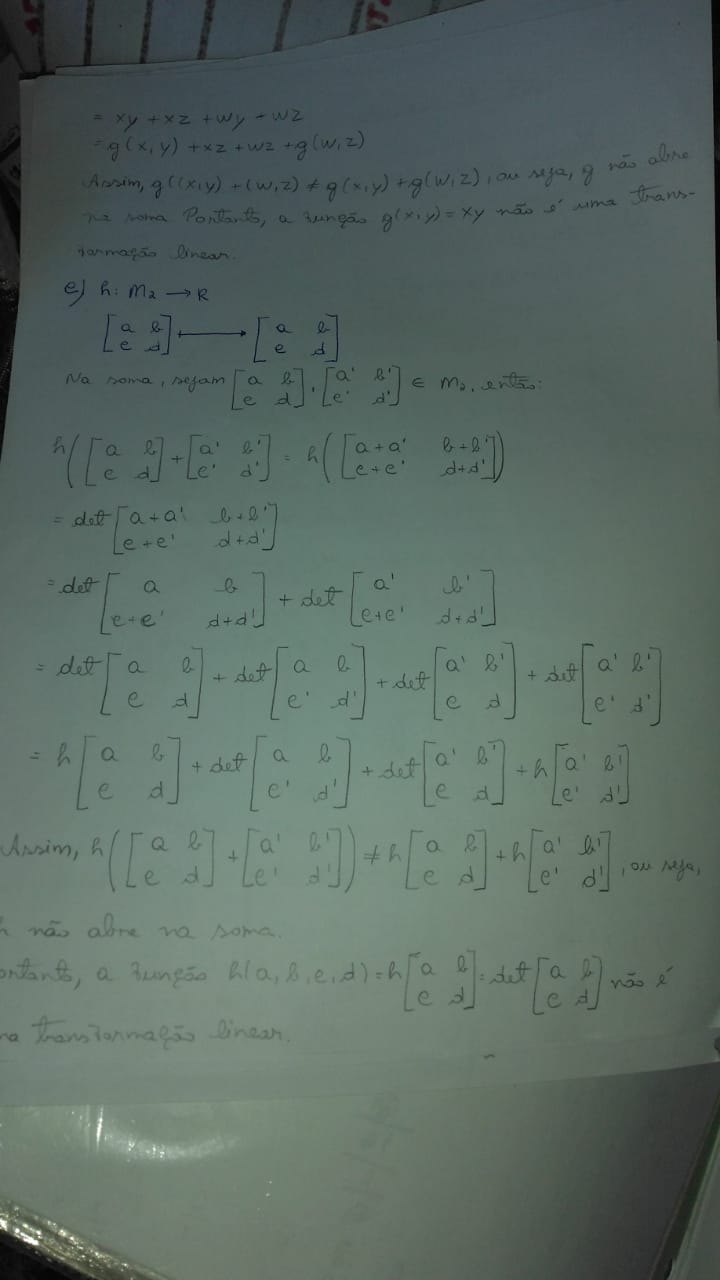 = xy + xz + wy + wz
= g(x,y) + xz + wz + g(w,z)
Assim, g((x,y) + (w,z) ≠ g(x,y) + g(w,z), ou seja, g não abre
na soma Portanto, a função g(x,y) = xy não é uma trans-
formação linear.
e) h: M2 → R
[a b; e d] ⟼ [a b; e d]
Na soma, sejam [a b; e d], [a' b'; e' d'] ∈ M2, então:
h([a b; e d] + [a' b'; e' d'] = h([a+a' b+b'; e+e' d+d'])
= det [a+a' b+b'; e+e' d+d']
= det [a b; e+e' d+d'] + det [a' b'; e+e' d+d']
= det [a b; e d] + det [a b; e' d'] + det [a' b'; e d] + det [a' b'; e' d']
= h [a b; e d] + det [a b; e' d'] + det [a' b'; e d] + h [a' b'; e' d']
Assim, h([a b; e d] + [a' b'; e' d']) ≠ h [a b; e d] + h [a' b'; e' d'], ou seja,
h não abre na soma.
ortanto, a função h(a, b, e, d) = h [a b; e d] = det [a b; e d] não é
ma transformação linear.